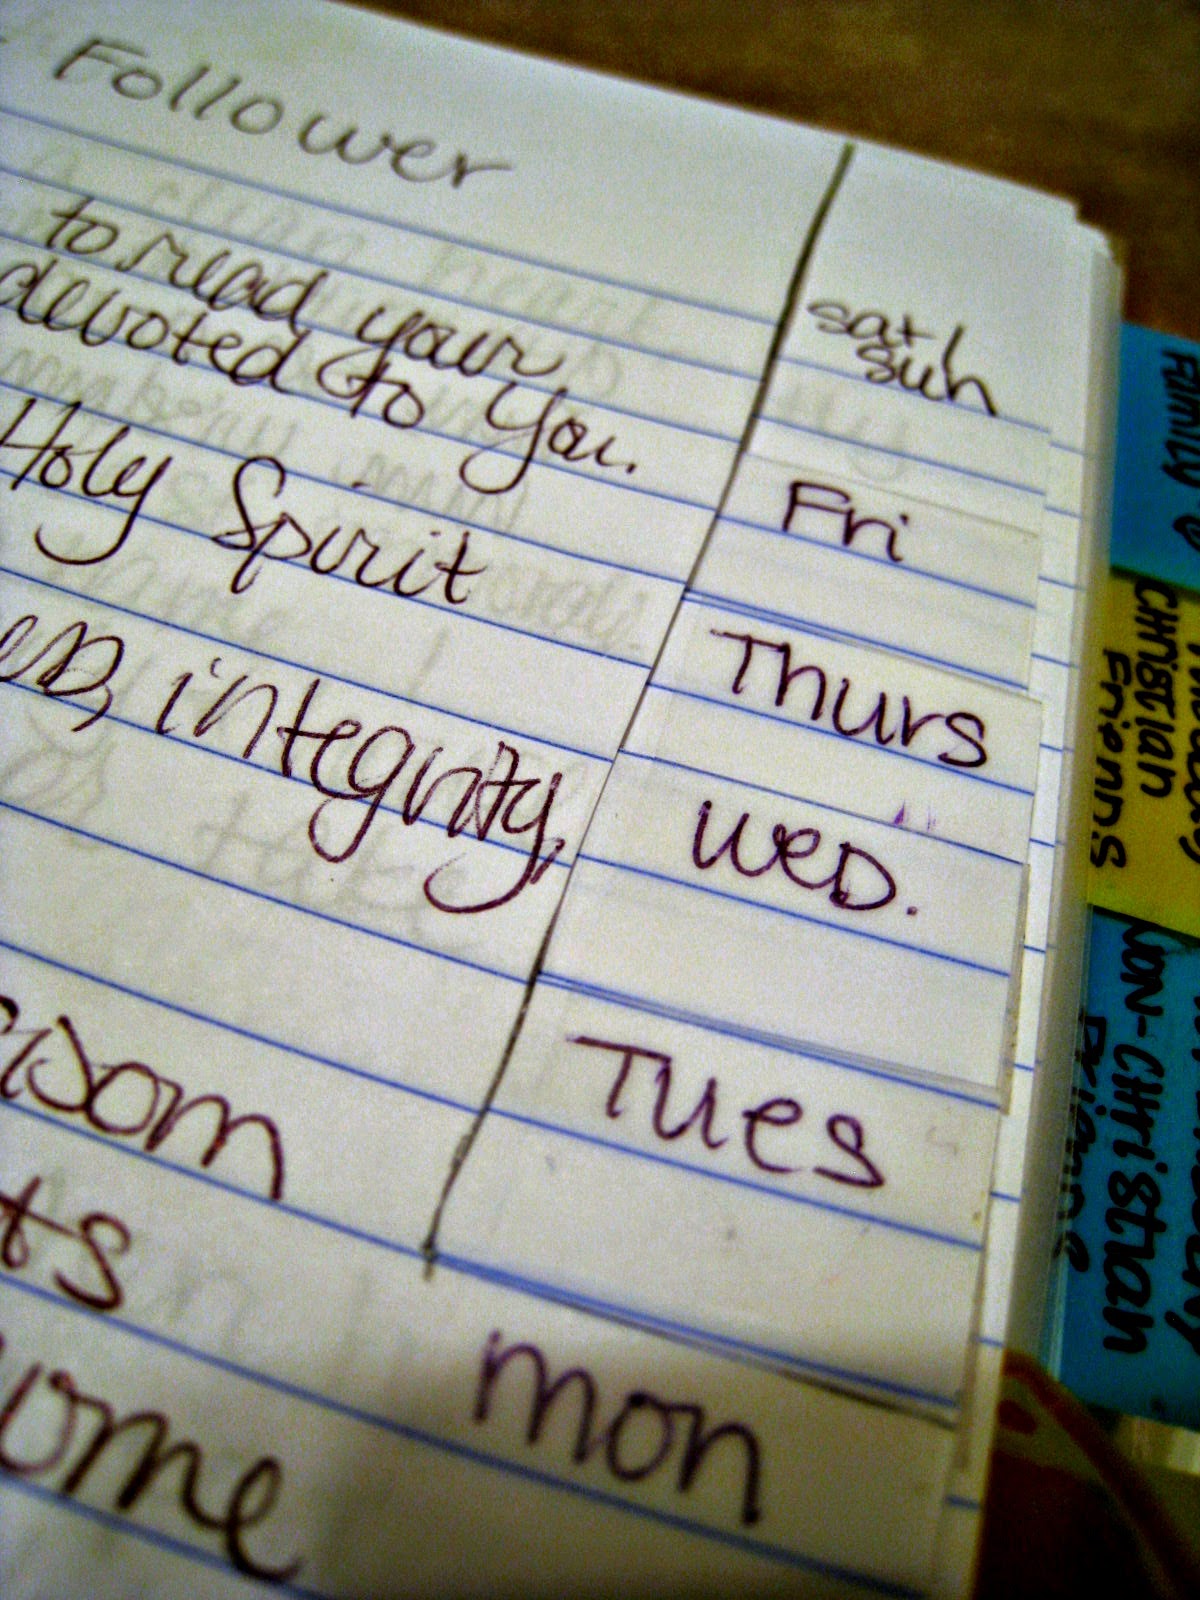 Follower
to read your
devoted to You.
Holy Spirit
integrity,
ts
ome
sat/
sun
Fri
Thurs
Wed.
Tues
mon
Family
Christian
Friends
Non-Christian